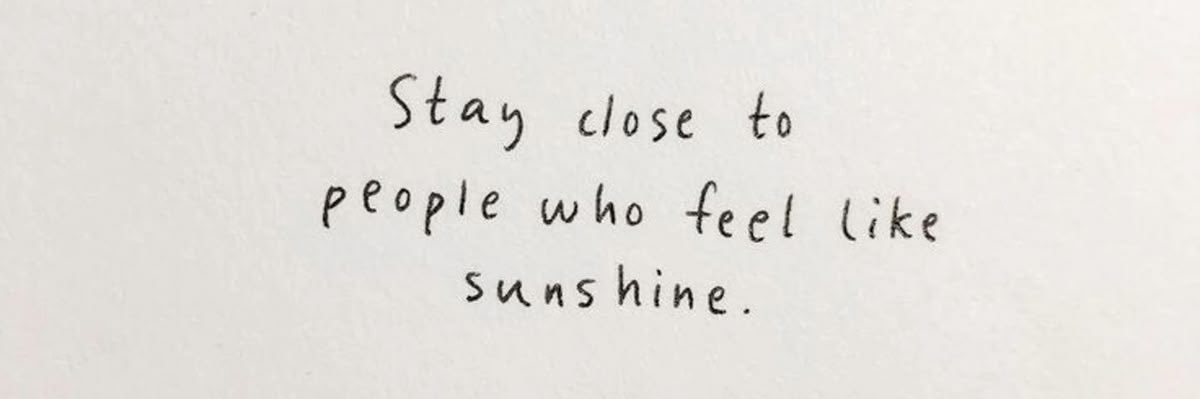 Stay close to
people who feel like
sunshine.